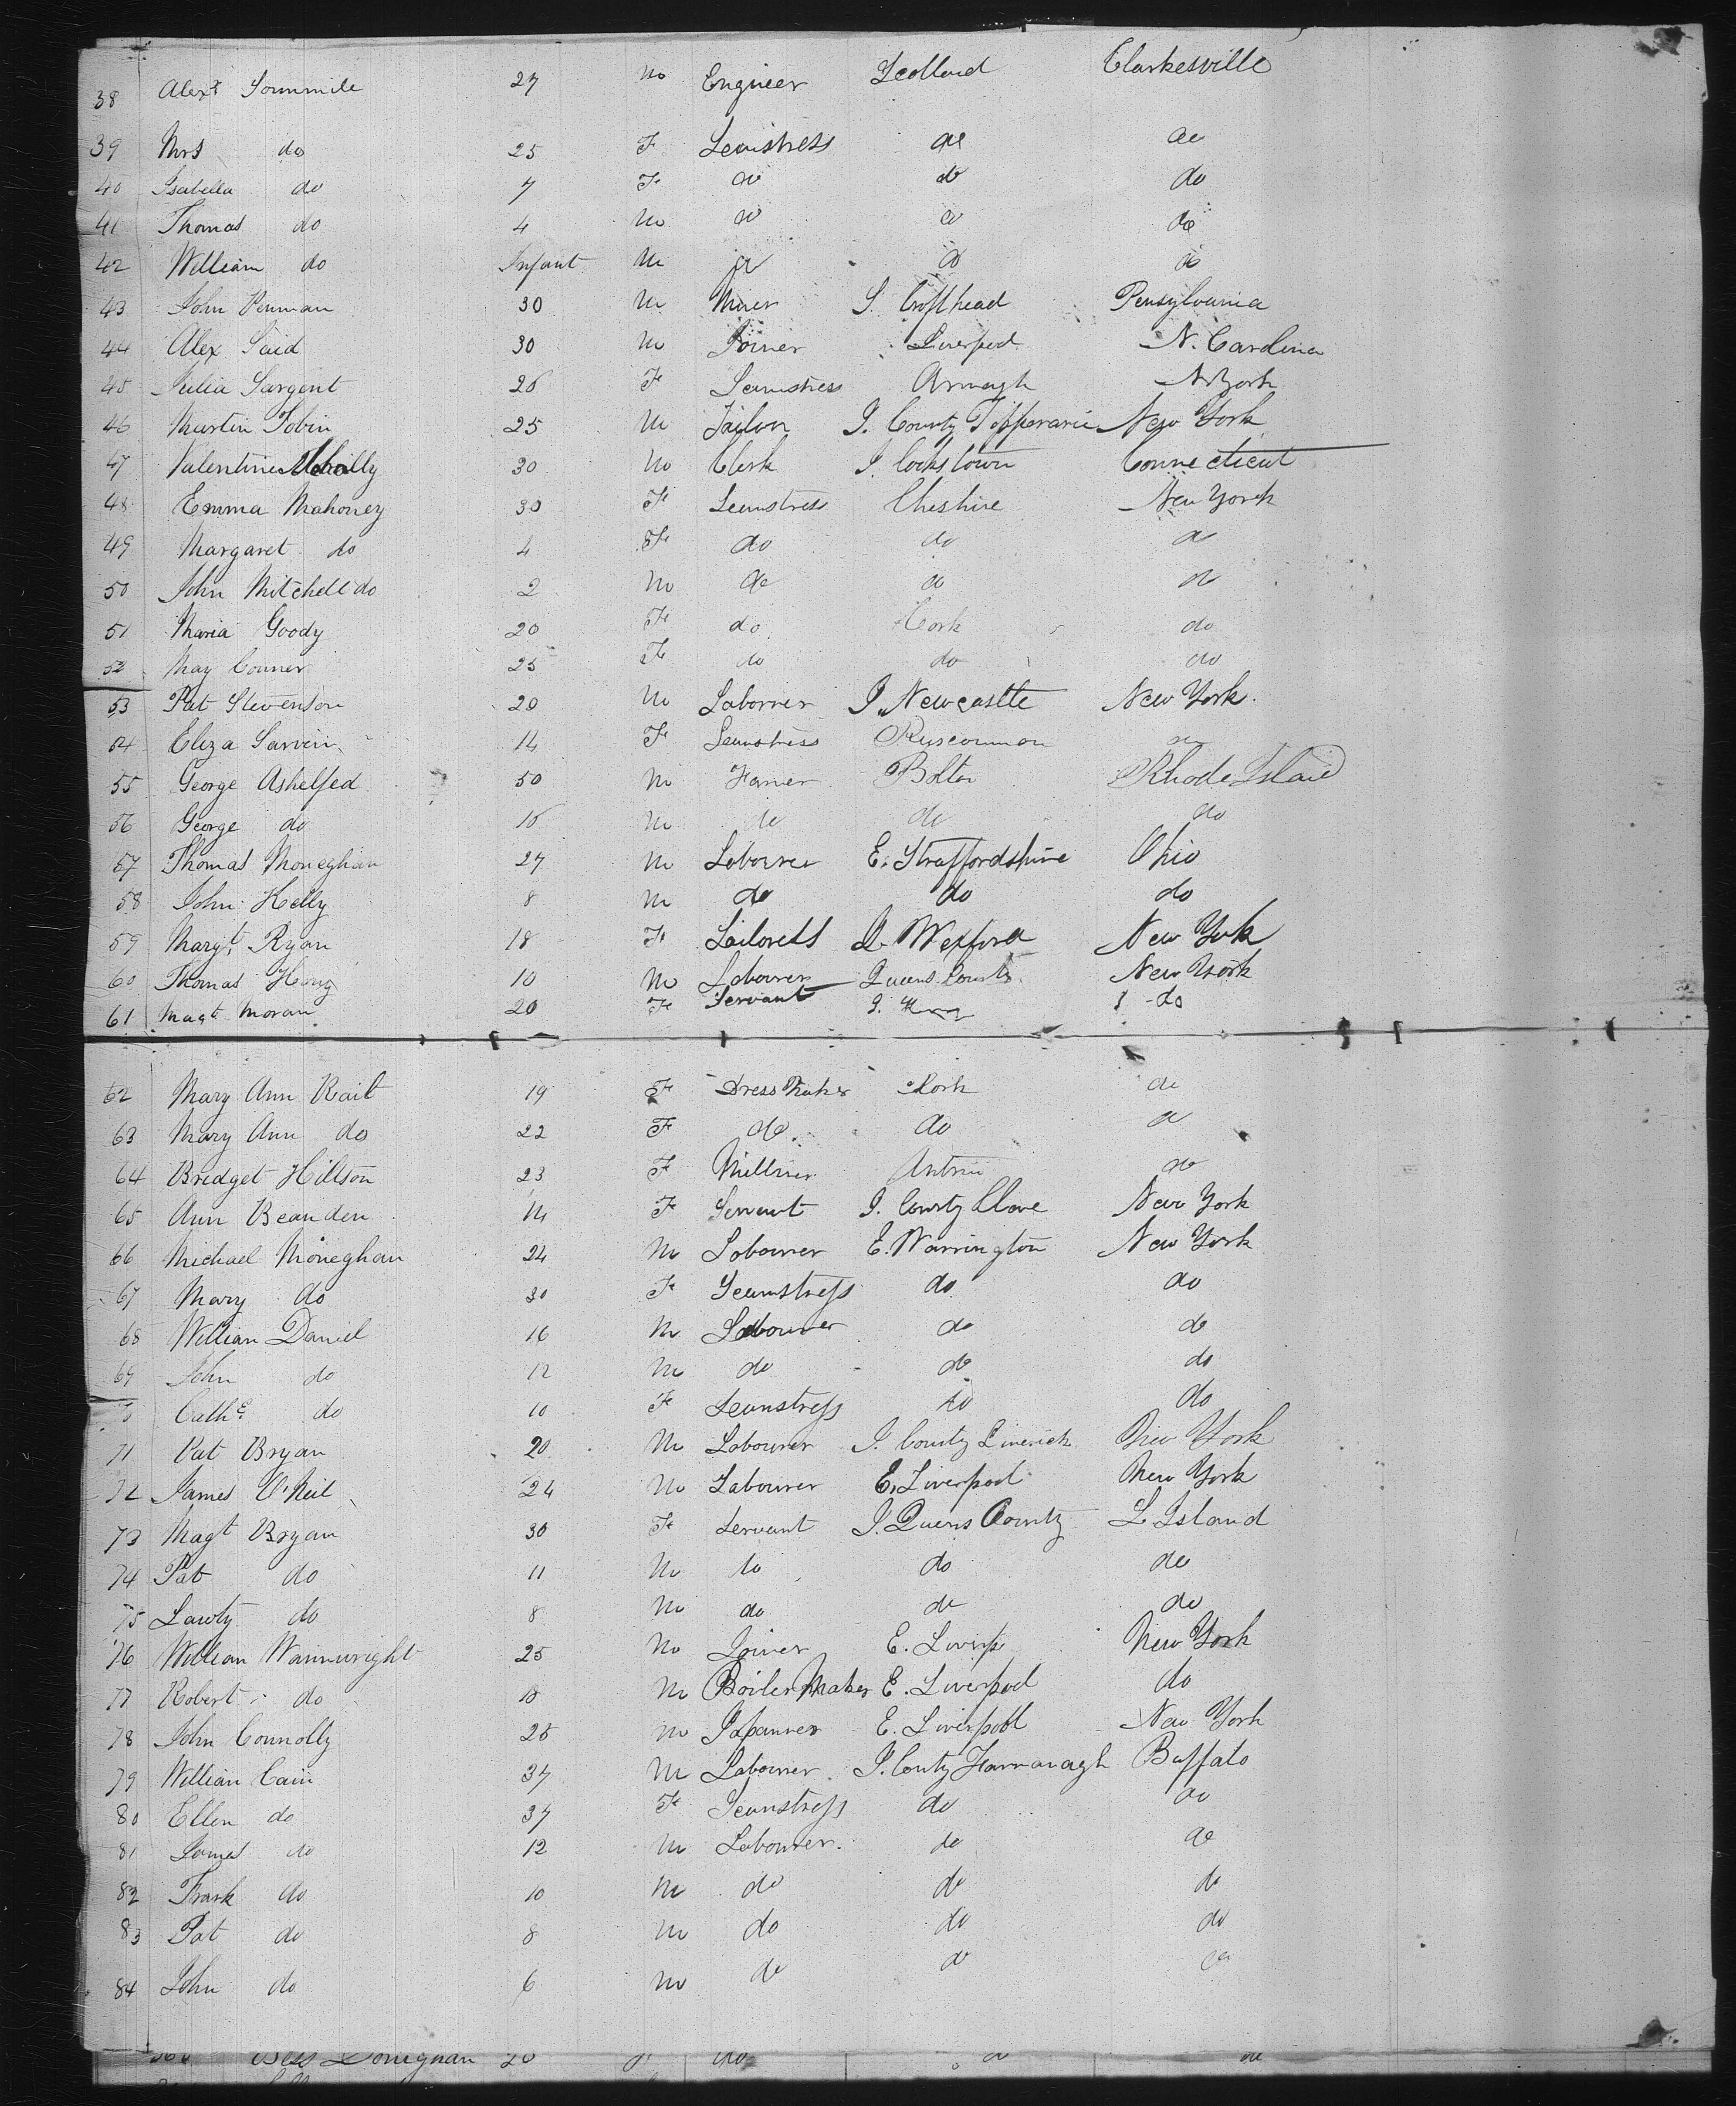 38 Alexr 27 M Engineer Scotland Clarkesville
39 Mrs do 25 F Seamstress do do
40 Isabella do 7 F do do do
41 Thomas do 4 M do do do
42 William do Infant M do do do
43 John Penman 30 M Miner S. Crofthead Pensylvania
44 Alex Laid 30 M Joiner Liverpool N. Carolina
45 Julia Sargent 26 F Seamstress Armagh N York
46 Martin Tobin 25 M Tailor I. County Tipperarie New York
47 Valentine 30 M Clerk I. Cockstown Connecticut
48 Emma Mahoney 30 F Seamstress Cheshire New York
49 Margaret do 4 F do do do
50 John Mitchell do 2 M do do do
51 Maria Goody 20 F do Cork do
52 May Conner 25 F do do do
53 Pat Stevenson 20 M Laborrer I. Newcastle New York.
54 Eliza 14 F Seamstress Ruscommon do
55 George Ashelfed 50 M Farmer Bolton Rhode Island
56 George do 16 M do do do
57 Thomas Moneghan 27 M Labourer E. Straffordshire Ohio
58 John Kelly 8 M do do do
59 Margt Ryan 18 F Tailoress I. Wexford New York
60 Thomas 10 M Labourer Queens County New York
61 Magt Moran 20 F Servant I. do
62 Mary Ann Rait 19 F Dress Maker Cork do
63 Mary Ann do 22 F do do do
64 Bridget Hillson 23 F Milliner Antrim do
65 Ann Beanden F Servant I. County Clare New York
66 Michael Moneghan 24 M Labourer E. Warrington New York
67 Mary do 30 F Seamstress do do
68 William Daniel 16 M Labourer do do
69 John do 12 M do do do
Cathe do 10 F Seamstress do do
71 Pat Bryan 20 M Labourer I. County Limerick New York
72 James O'Neil 24 M Labourer E. Liverpool New York
73 Magt Bryan 30 F Servant I. Queens County L Island
74 Pat do 11 M do do do
75 Lawty do 8 M do do do
76 William Wainwright 25 M Joiner E. Liverp New York
77 Robert do 18 M Boiler Maker E. Liverpool do
78 John Connolly 25 M Japanner E. Liverpool New York
79 William Cain 37 M Labourer I. Conty Farmanagh Buffalo
80 Ellen do 37 F Seamstress do do
81 James do 12 M Labourer. do do
82 Frank do 10 M do do do
83 Pat do 8 M do do do
84 John do 6 M do do do
Bess Doneghan 20 do do do